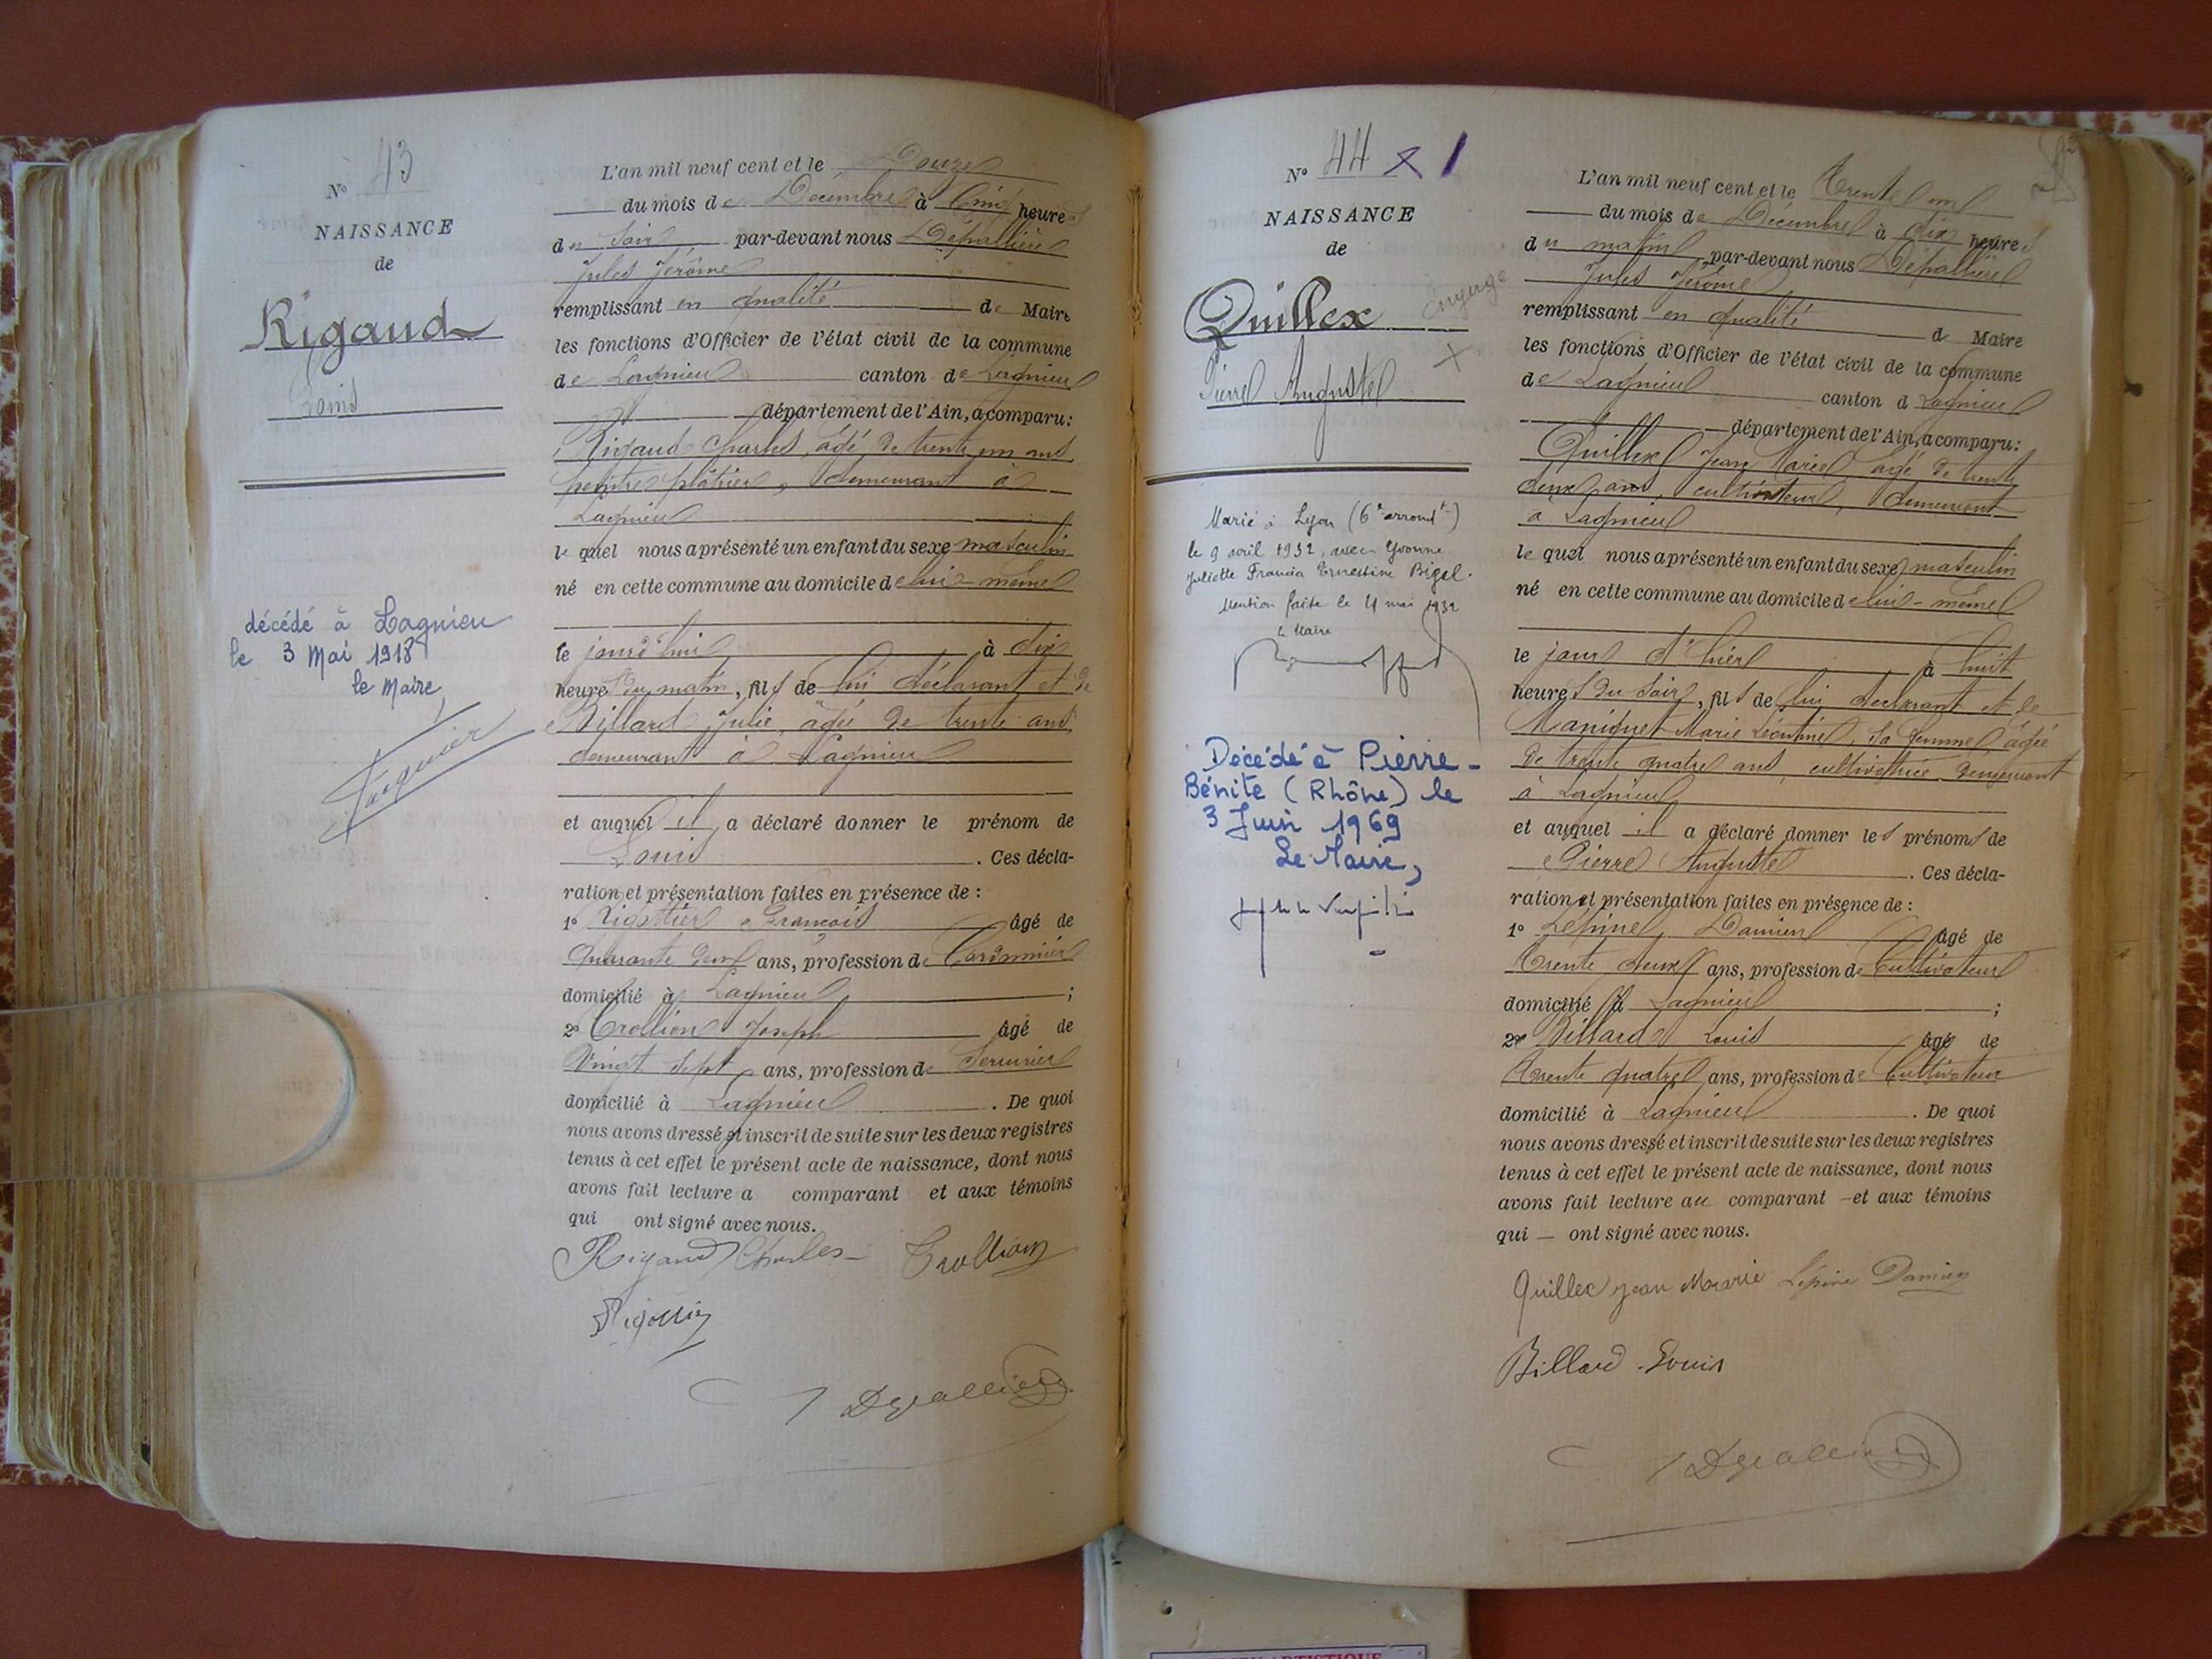 N° 43
NAISSANCE
de
Rigaud
Louis
décédé à Lagnieu
le 3 Mai 1918
le Maire,
L'an mil neuf cent et le Douze
du mois de Décembre à Cinq heures
du Soir par-devant nous Dépallière
Jules Jérôme
remplissant en qualité de Maire
les fonctions d'Officier de l'état civil de la commune
de Lagnieu canton de Lagnieu
département de l'Ain, a comparu:
Rigaud Charles, âgé de trente un ans
peintre plâtrier, demeurant à
Lagnieu
lequel nous a présenté un enfant du sexe masculin
né en cette commune au domicile de lui-même
le jourd'hui à dix
heures du matin, fils de lui déclarant et de
Billard Julie, âgée de trente ans
demeurant à Lagnieu
et auquel il a déclaré donner le prénom de
Louis . Ces décla-
ration et présentation faites en présence de :
1° Rigottier François âgé de
Quarante deux ans, profession de Cordonnier
domicilié à Lagnieu ;
2° Trollion Joseph âgé de
Vingt sept ans, profession de Serrurier
domicilié à Lagnieu . De quoi
nous avons dressé et inscrit de suite sur les deux registres
tenus à cet effet le présent acte de naissance, dont nous
avons fait lecture a comparant et aux témoins
qui ont signé avec nous.
Rigaud Charles Trollion
Rigottier
N° 44 x 1
NAISSANCE
de
Quillex
Pierre Auguste
Marié à Lyon (6e arrondt)
le 9 avril 1932, avec Yvonne
Juliette Francia Ernestine Bigel.
Mention faite le 4 mai 1932
Le Maire
Décédé à Pierre-
Bénite (Rhône) le
3 Juin 1969
Le Maire,
L'an mil neuf cent et le Trente un
du mois de Décembre à dix heures
du matin par-devant nous Dépallière
Jules Jérôme
remplissant en qualité d Maire
les fonctions d'Officier de l'état civil de la commune
de Lagnieu canton d Lagnieu
département de l'Ain, a comparu:
Quillex Jean Marie âgé de trente
deux ans, cultivateur, demeurant
à Lagnieu
lequel nous a présenté un enfant du sexe masculin
né en cette commune au domicile de lui-même
le jour d'hier à huit
heures du soir, fils de lui déclarant et de
Maniquet Marie Léontine, sa femme, âgée
de trente quatre ans, cultivatrice demeurant
à Lagnieu
et auquel il a déclaré donner les prénoms de
Pierre Auguste . Ces décla-
ration et présentation faites en présence de :
1° Lépine Damien âgé de
Trente deux ans, profession de Cultivateur
domicilié à Lagnieu ;
2° Billard Louis âgé de
Trente quatre ans, profession de Cultivateur
domicilié à Lagnieu . De quoi
nous avons dressé et inscrit de suite sur les deux registres
tenus à cet effet le présent acte de naissance, dont nous
avons fait lecture au comparant et aux témoins
qui ont signé avec nous.
Quillex Jean Marie Lépine Damien
Billard Louis